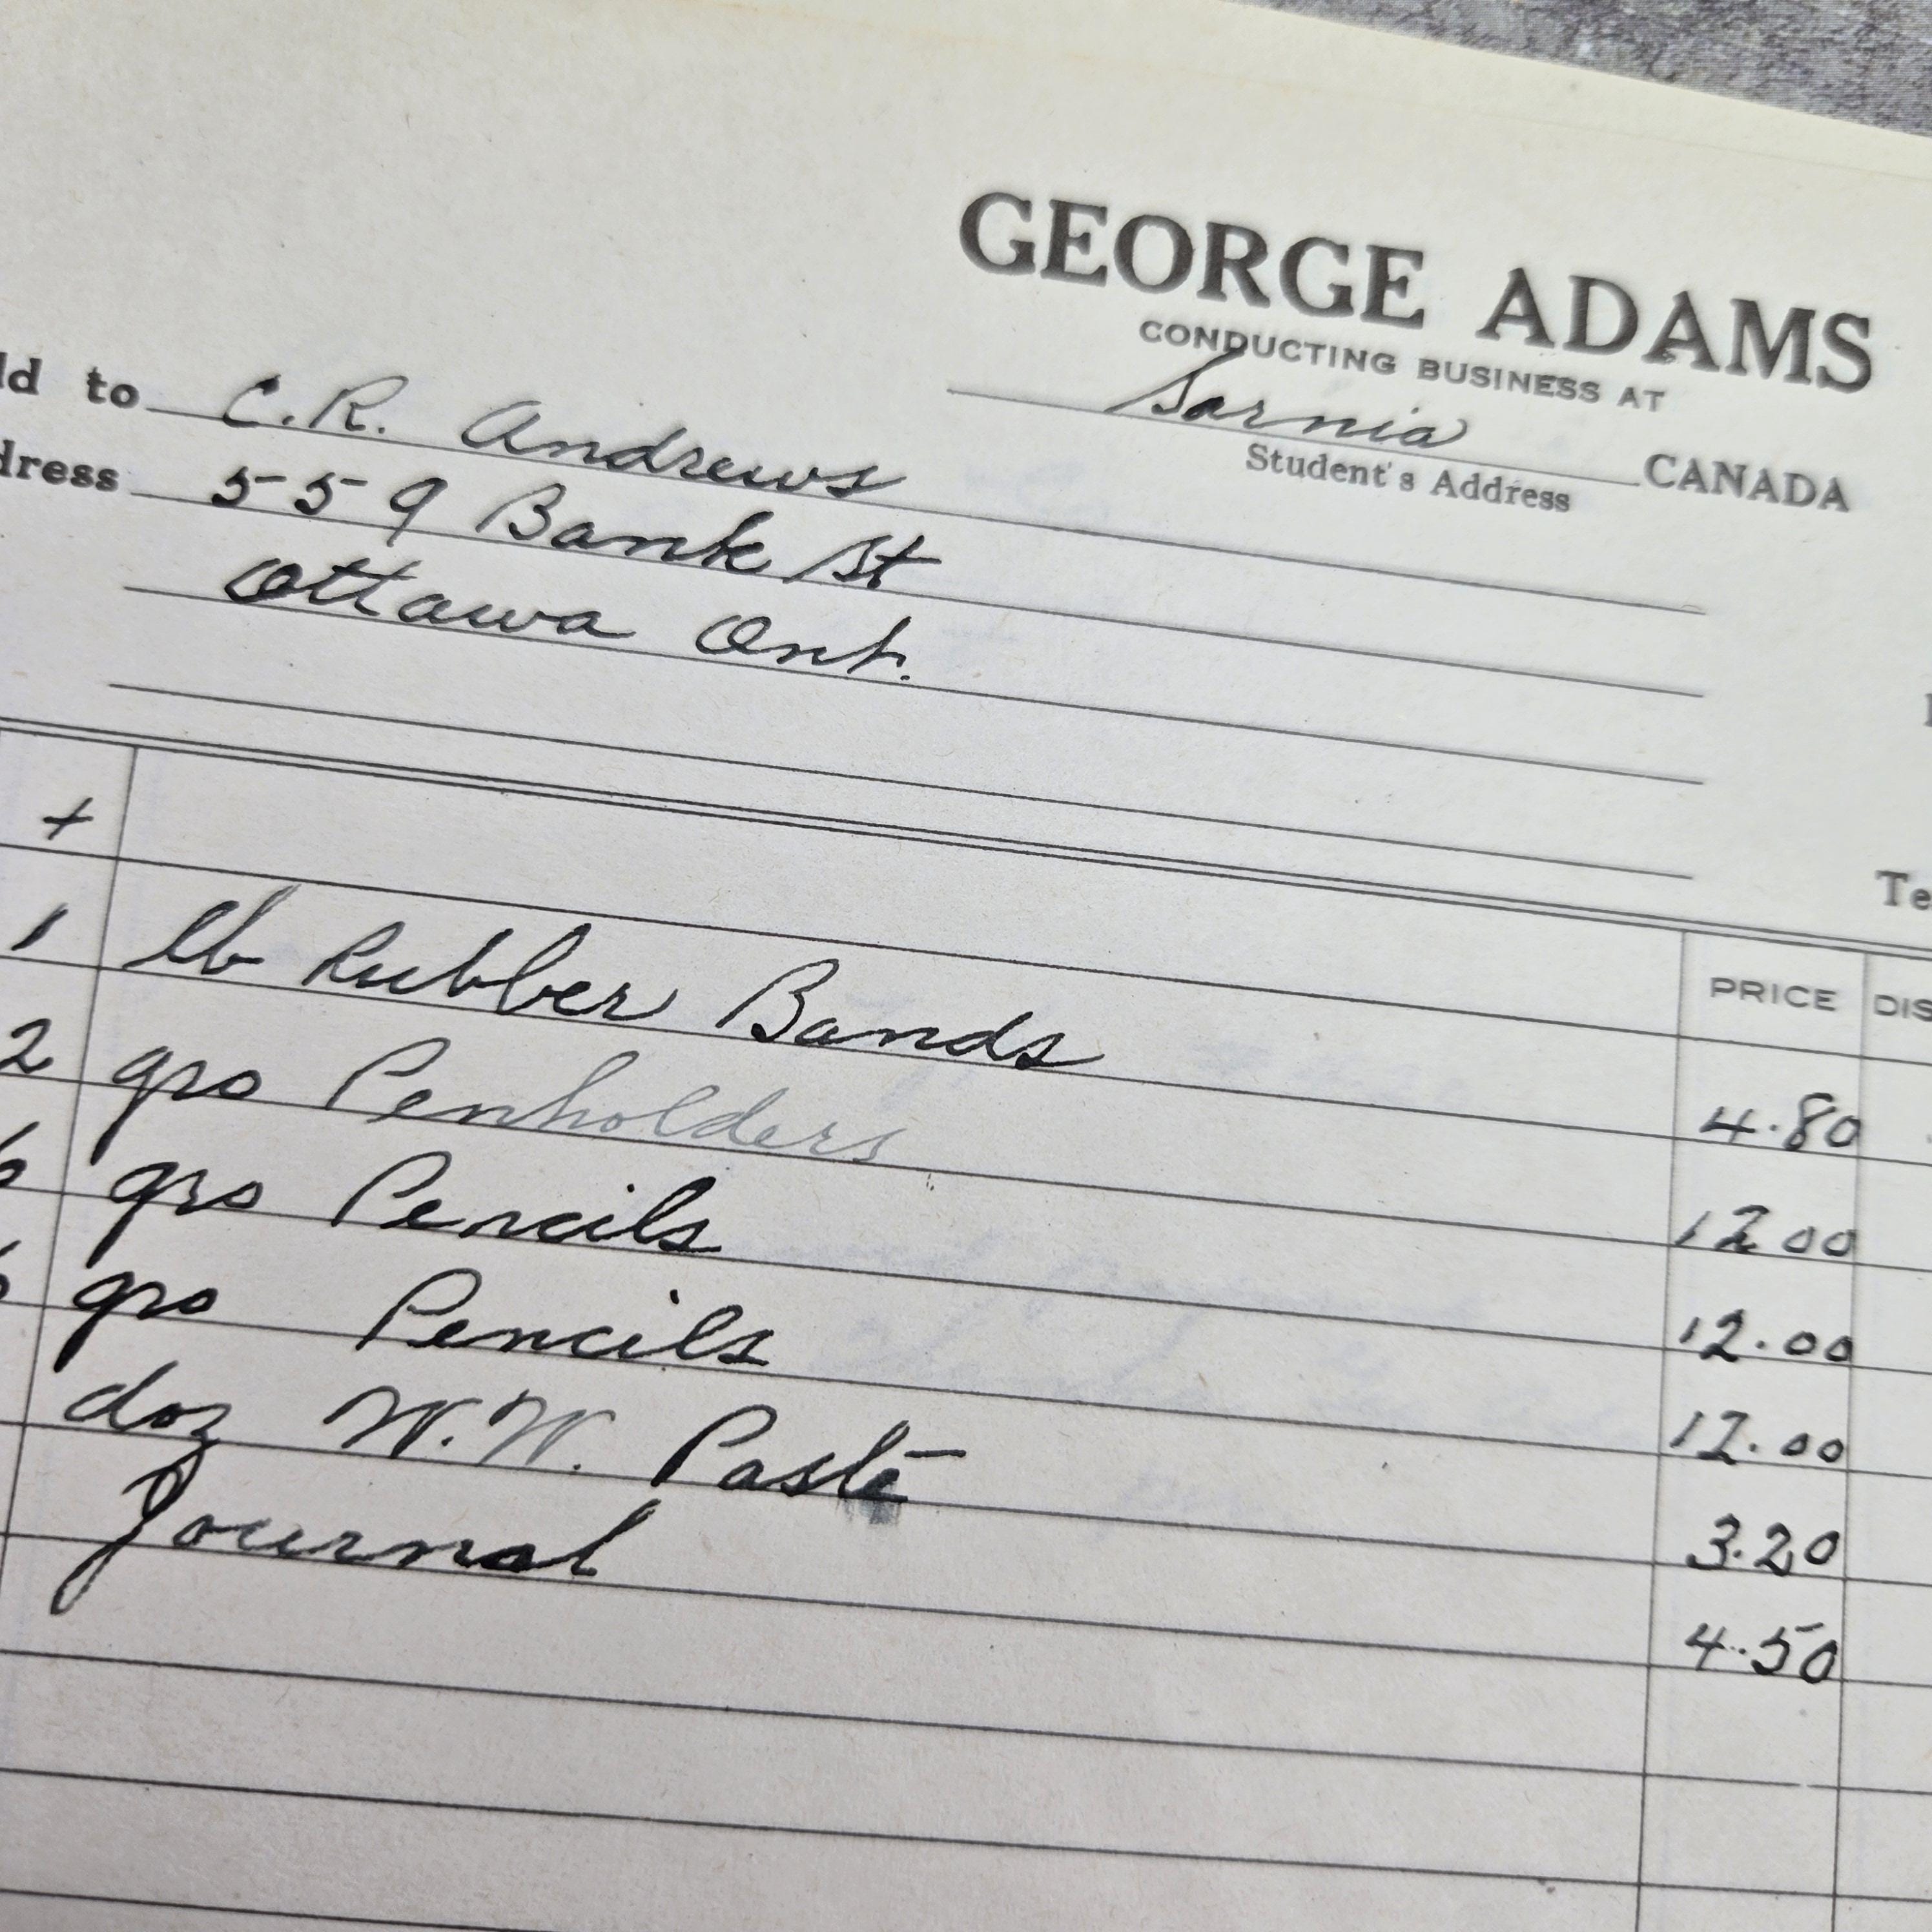 GEORGE ADAMS
CONDUCTING BUSINESS AT
Sarnia CANADA
Student's Address
ld to C. R. Andrews
dress 559 Bank St
Ottawa Ont.
Te
+ PRICE DIS
1 lb Rubber Bands 4.80
2 gro Penholders 12 00
6 gro Pencils 12.00
gro Pencils 12.00
doz W.W. Paste 3.20
Journal 4.50